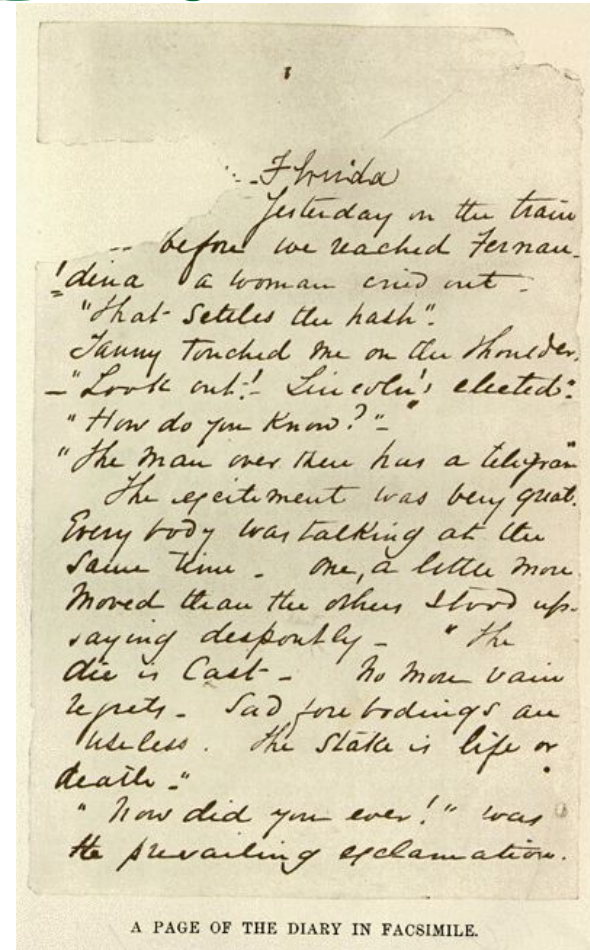 1
Florida
Yesterday on the train
before we reached Fernan-
dina a woman cried out -
"That settles the hash".
Tanny touched me on the shoulder.
- "Look out! - Lincoln's elected".
"How do you know?" -
"The man over there has a telegram"
The excitement was very great.
Every body was talking at the
same time - One, a little more
moved than the others stood up -
saying despondently - "The
die is cast - No more vain
regrets - Sad forebodings are
useless. The stake is life or
death -"
"Now did you ever!" was
the prevailing exclamation.
A PAGE OF THE DIARY IN FACSIMILE.